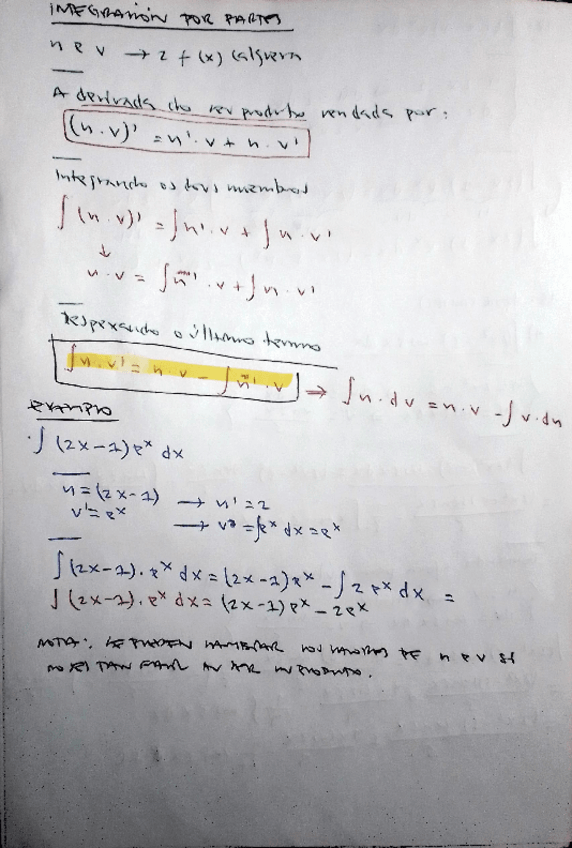 INTEGRACIÓN POR PARTES
u e v → 2 f(x) calquera
A derivada do seu produto ven dada por:
(u·v)' = u'·v + u·v'
Integrando os dous membros
∫(u·v)' = ∫u'·v + ∫u·v'
↓
u·v = ∫u'·v + ∫u·v'
Despexando o último termo
∫u·v' = u·v - ∫u'·v ⇒ ∫u·dv = u·v - ∫v·du
EXEMPLO
·∫(2x-1)e^x dx
u = (2x-1) → u' = 2
v' = e^x → v = ∫e^x dx = e^x
∫(2x-1)·e^x dx = (2x-1)e^x - ∫2e^x dx =
∫(2x-1)·e^x dx = (2x-1)e^x - 2e^x
NOTA: SE PUEDEN CAMBIAR LOS VALORES DE u e v SI
NO ES TAN FACIL